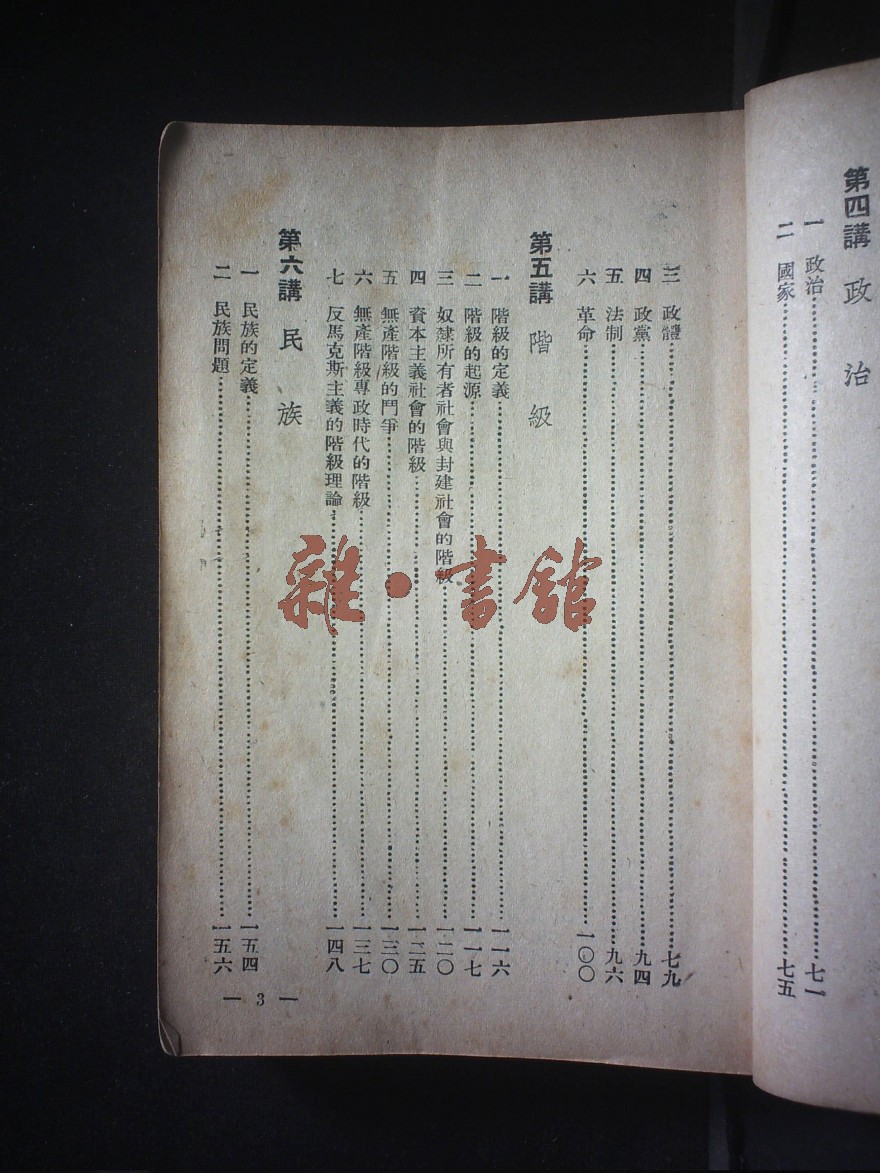 第四講 政治
一 政治 七一
二 國家 七五
三 政體 七九
四 政黨 九四
五 法制 九六
六 革命 一〇〇
第五講 階級
一 階級的定義 一一六
二 階級的起源 一一七
三 奴隸所有者社會與封建社會的階級 一二〇
四 資本主義社會的階級 一二五
五 無產階級的鬥爭 一三〇
六 無產階級專政時代的階級 一三七
七 反馬克斯主義的階級理論 一四八
第六講 民族
一 民族的定義 一五四
二 民族問題 一五六
— 3 —
雜·書舘